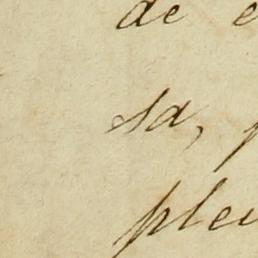 de e
sa, p
plei